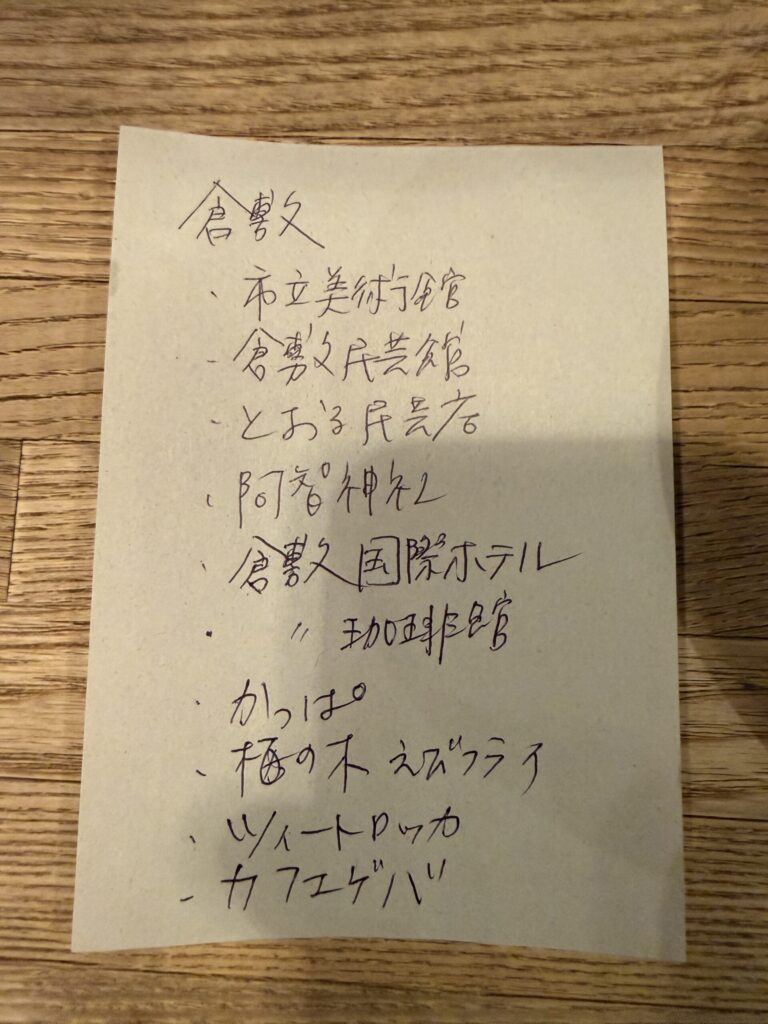 倉敷
・市立美術館
・倉敷民芸館
・とおる民芸店
・阿智神社
・倉敷国際ホテル
・〃 珈琲館
・かっぱ
・梅の木 えびフライ
・ツィートロッカ
・カフエゲバ